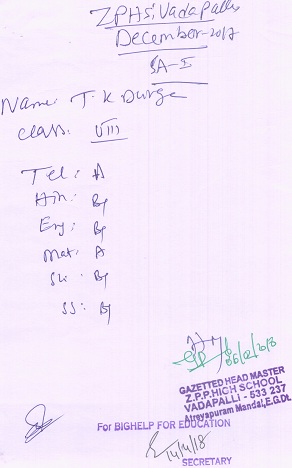 ZPHS; Vadapalli
December-2017
SA-I
Name: T. K Durga
class: VIII
Tel: A
Hin: B+
Eng: B+
Mat: A
Sci: B+
SS: B+
06/02/2018
GAZETTED HEAD MASTER
Z.P.P.HIGH SCHOOL
VADAPALLI - 533 237
Atreyapuram Mandal, E.G.Dt.
For BIGHELP FOR EDUCATION
14/4/18
SECRETARY